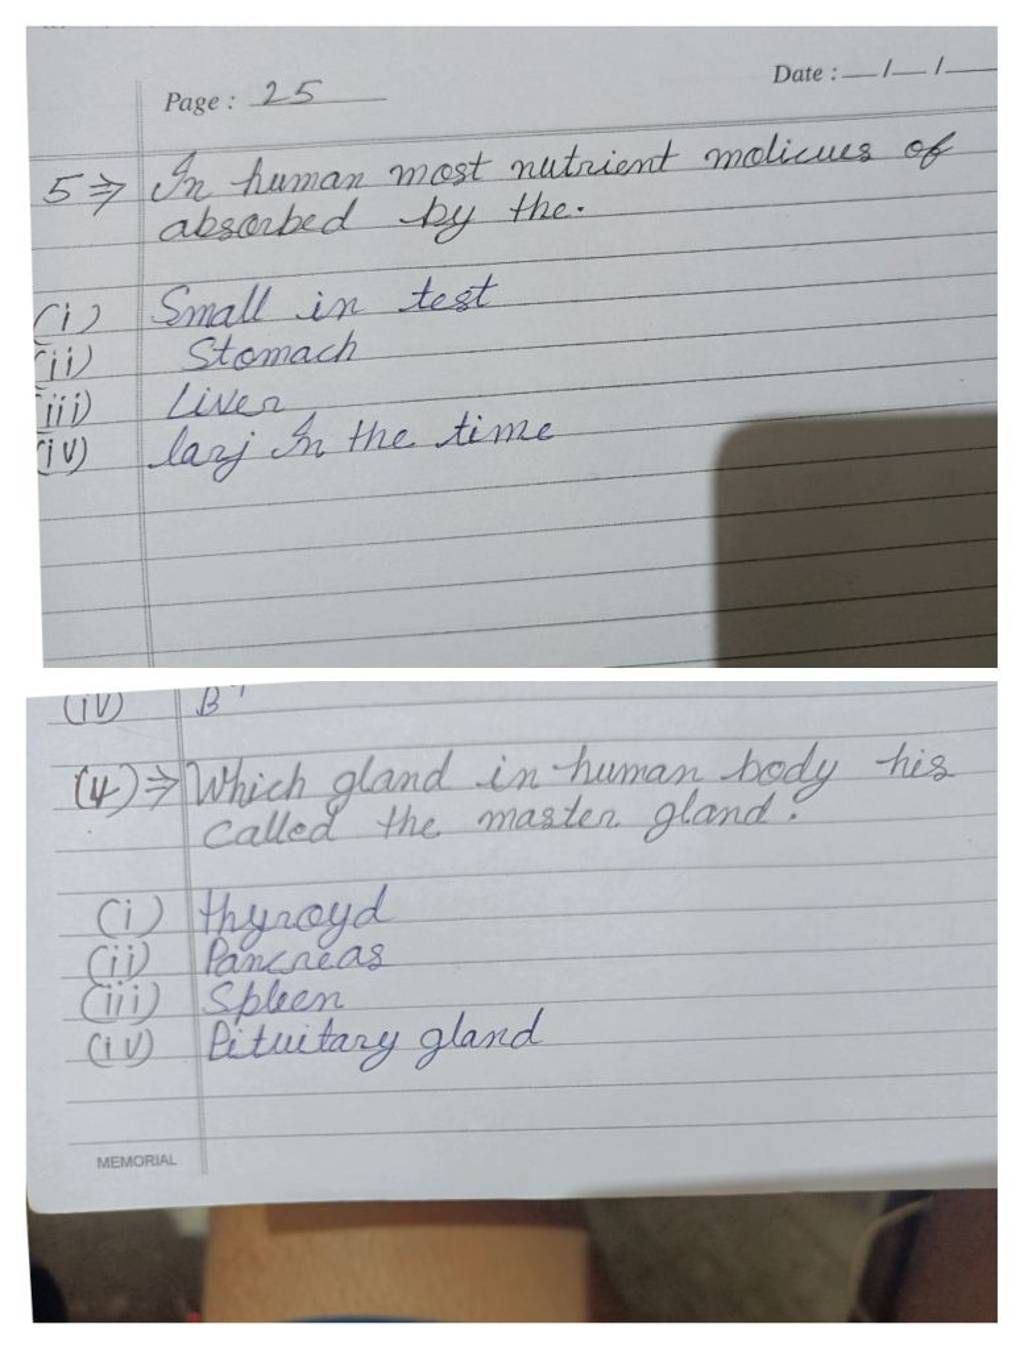 Page : 25
Date : __/__/__
5⇒ In human most nutrient molicues of
absorbed by the.
(i) Small in test
(ii) Stomach
(iii) Liver
(iv) larj In the time
(iv) B
(4)⇒ Which gland in human body his
called the master gland.
(i) thyroyd
(ii) Pancreas
(iii) Spleen
(iv) Pituitary gland
MEMORIAL